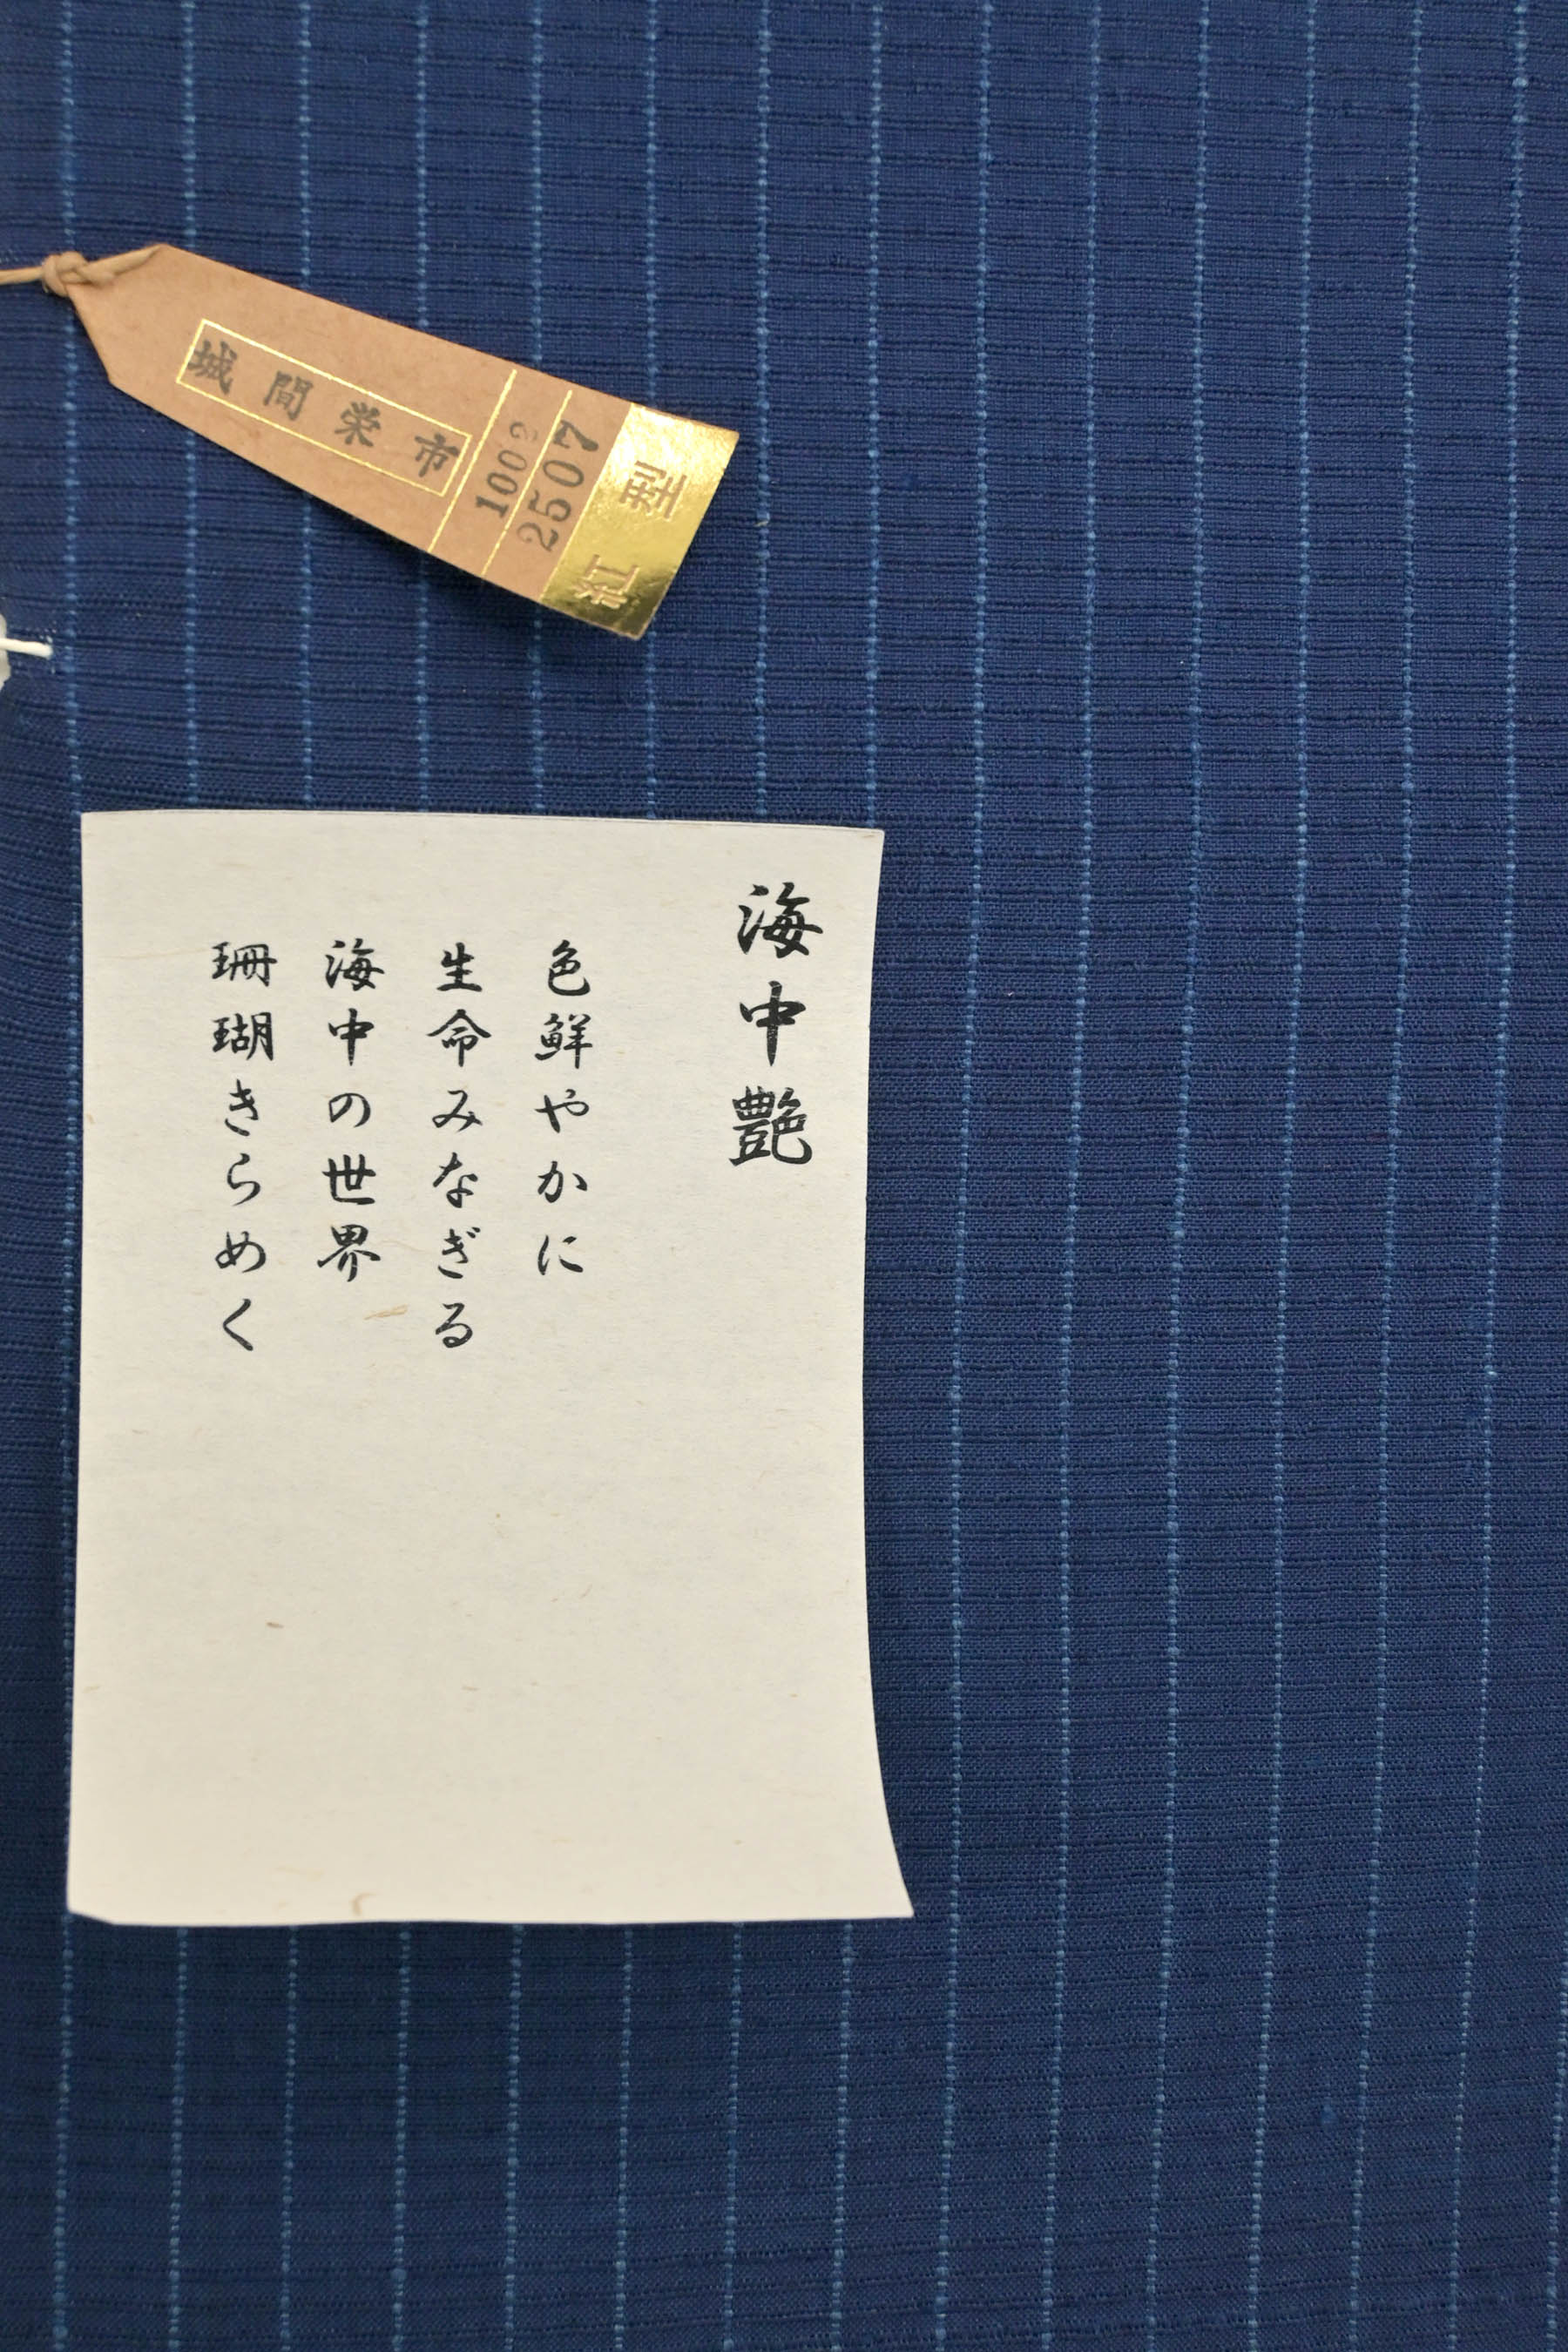 紅型
2507
1002
城間栄市
海中艶
色鮮やかに
生命みなぎる
海中の世界
珊瑚きらめく